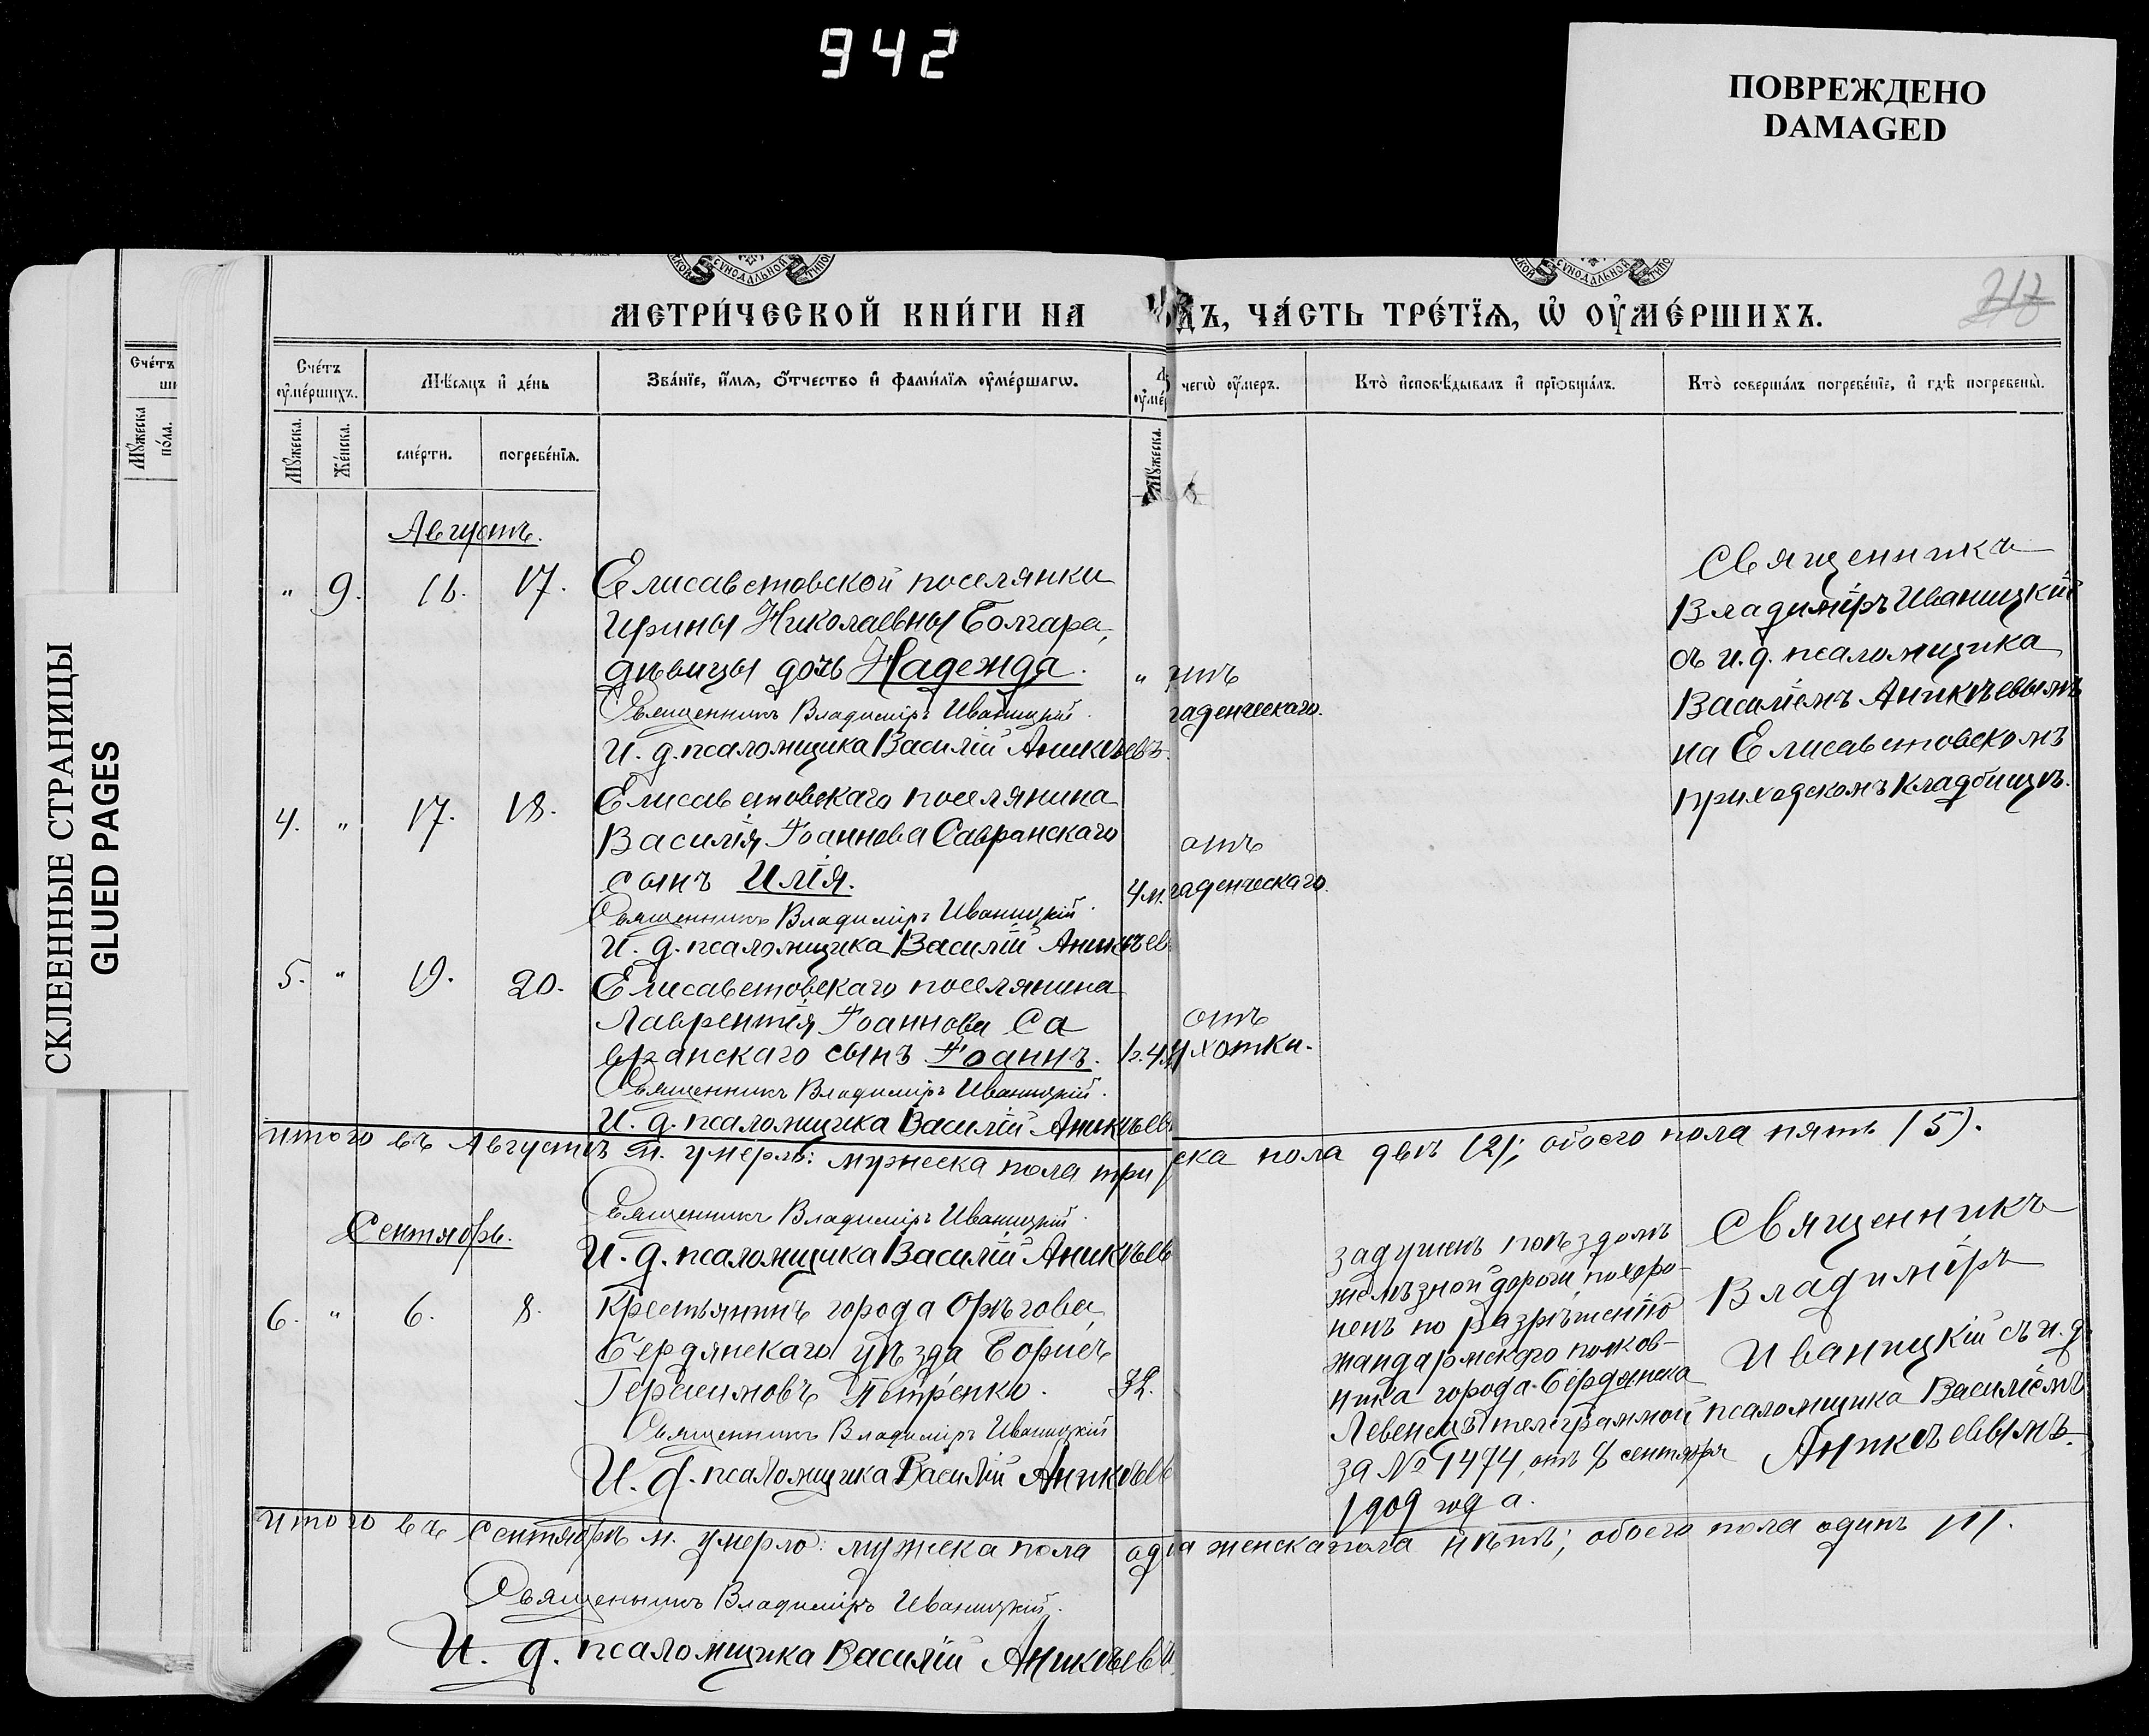 942
ПОВРЕЖДЕНО
DAMAGED
СКЛЕЕННЫЕ СТРАНИЦЫ
GLUED PAGES
МЕТРИ́ЧЕСКОЙ КНИ́ГИ НА
ДЪ, ЧА́СТЬ ТРЕ́ТЇѦ, Ѡ҆ ОУ҆МЕ́РШИХЪ.
212
Сче́тъ
Мꙋ́жеска
по́ла.
Сче́тъ оу҆ме́ршихъ.
Мѣ́сѧцъ и҆ де́нь
Зва́нїе, и҆́мѧ, ѻ҆́тчество и҆ фами́лїѧ оу҆ме́ршагѡ.
чегѡ̀ оу҆́меръ.
Кто̀ и҆сповѣ́дывалъ и҆ прїѡбща́лъ.
Кто̀ соверша́лъ погребе́нїе, и҆ гдѣ̀ погребены̀.
Мꙋ́жеска.
Же́нска.
сме́рти.
погребе́нїѧ.
Мꙋ́жеска.
Августъ.
" 9. 16. 17. Елисаветовской поселянки
Ирины Николаевны Болгара,
дѣвицы дочь Надежда. "
Священникъ Владиміръ Иваницкій.
И. д. псаломщика Василій Аникѣевъ.
гаденческаго.
Священникъ
Владиміръ Иваницкій
съ и. д. псаломщика
Василіемъ Аникѣевымъ
на Елисаветовскомъ
приходскомъ кладбищѣ.
4. " 17. 18. Елисаветовскаго поселянина
Василія Іоаннова Савранскаго
сынъ Илія. 4 м.
Священникъ Владиміръ Иваницкій.
И. д. псаломщика Василій Аникѣев
отъ
гаденческаго.
5. " 19. 20. Елисаветовскаго поселянина
Лаврентія Іоаннова Са
вранскаго сынъ Іоаннъ. 1г. 4м
Священникъ Владиміръ Иваницкій.
И. д. псаломщика Василій Аникѣев
отъ
хотки.
Итого въ Августѣ м. умерло: мужеска пола три
ска пола двѣ (2); обоего пола пять (5).
Священникъ Владиміръ Иваницкій.
И. д. псаломщика Василій Аникѣев
Сентябрь.
6. " 6. 8. Крестьянинъ города Орѣхова,
Бердянскаго уѣзда Борисъ
Герасимовъ Петренко. 32.
Священникъ Владиміръ Иваницкій
И. д. псаломщика Василій Аникѣев
задушенъ поѣздомъ
желѣзной дороги, похоро-
ненъ по разрѣшенію
жандармскаго полков-
ника города Бердянска
телеграммой
за № 1474, отъ сентября
1909 года.
Священникъ
Владиміръ
Иваницкій съ и. д.
псаломщика Василіемъ
Аникѣевымъ.
Итого въ Сентябрѣ м. умерло: мужеска пола од
на женска пола нѣтъ; обоего пола одинъ (1).
Священникъ Владиміръ Иваницкій.
И. д. псаломщика Василій Аникѣевъ.